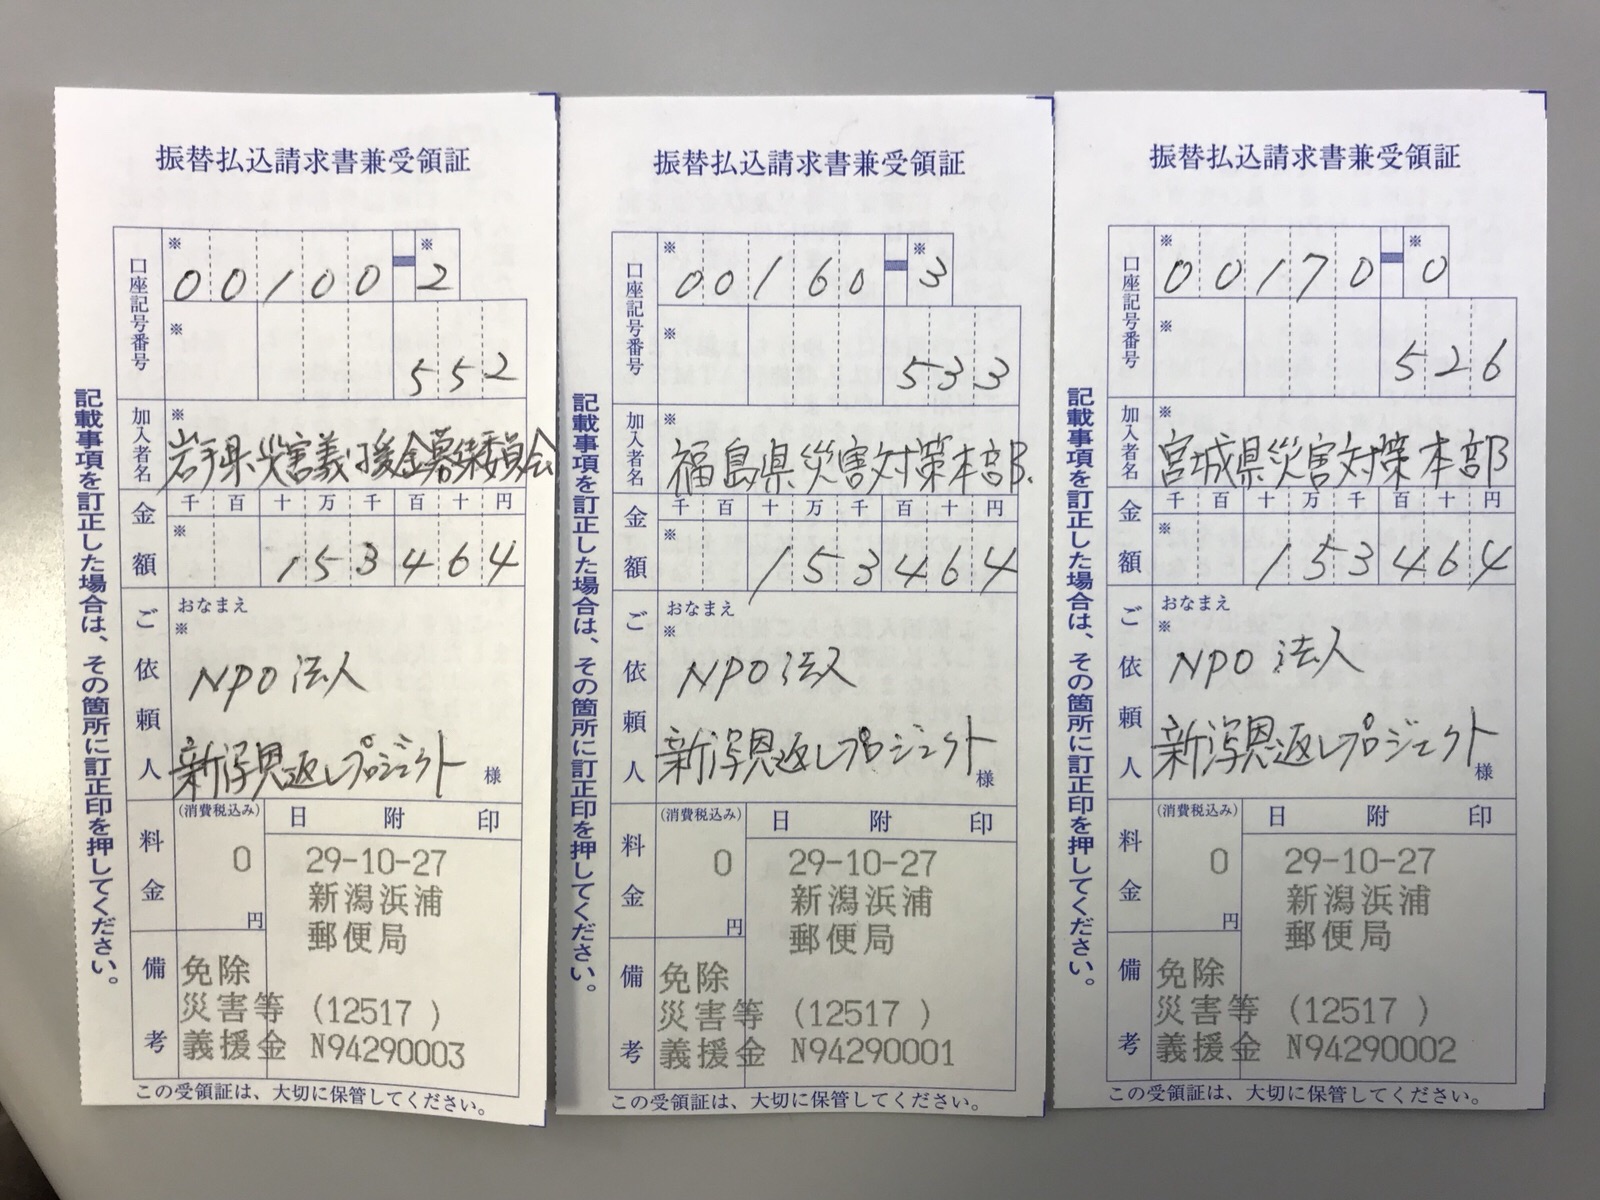 振替払込請求書兼受領証
口座記号番号
※ 00100-※2
※ 552
加入者名
※
岩手県災害義援金募集委員会
金額
千百十万千百十円
※ 153464
ご依頼人
おなまえ
※
NPO法人
新潟恩返しプロジェクト 様
料金
(消費税込み)
0
円
日附印
29-10-27
新潟浜浦
郵便局
備考
免除
災害等 (12517 )
義援金 N94290003
記載事項を訂正した場合は、その箇所に訂正印を押してください。
この受領証は、大切に保管してください。
振替払込請求書兼受領証
口座記号番号
※ 00160-※3
※ 533
加入者名
※
福島県災害対策本部.
金額
千百十万千百十円
※ 153464
ご依頼人
おなまえ
※
NPO法人
新潟恩返しプロジェクト 様
料金
(消費税込み)
0
円
日附印
29-10-27
新潟浜浦
郵便局
備考
免除
災害等 (12517 )
義援金 N94290001
記載事項を訂正した場合は、その箇所に訂正印を押してください。
この受領証は、大切に保管してください。
振替払込請求書兼受領証
口座記号番号
※ 00170-※0
※ 526
加入者名
※
宮城県災害対策本部
金額
千百十万千百十円
※ 153464
ご依頼人
おなまえ
※
NPO法人
新潟恩返しプロジェクト 様
料金
(消費税込み)
0
円
日附印
29-10-27
新潟浜浦
郵便局
備考
免除
災害等 (12517 )
義援金 N94290002
記載事項を訂正した場合は、その箇所に訂正印を押してください。
この受領証は、大切に保管してください。